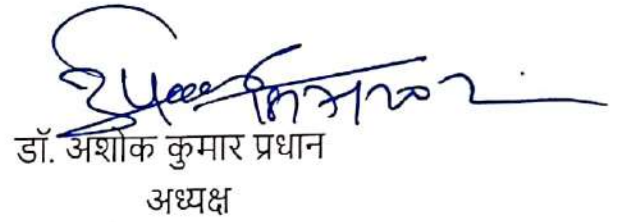 डॉ. अशोक कुमार प्रधान
अध्यक्ष